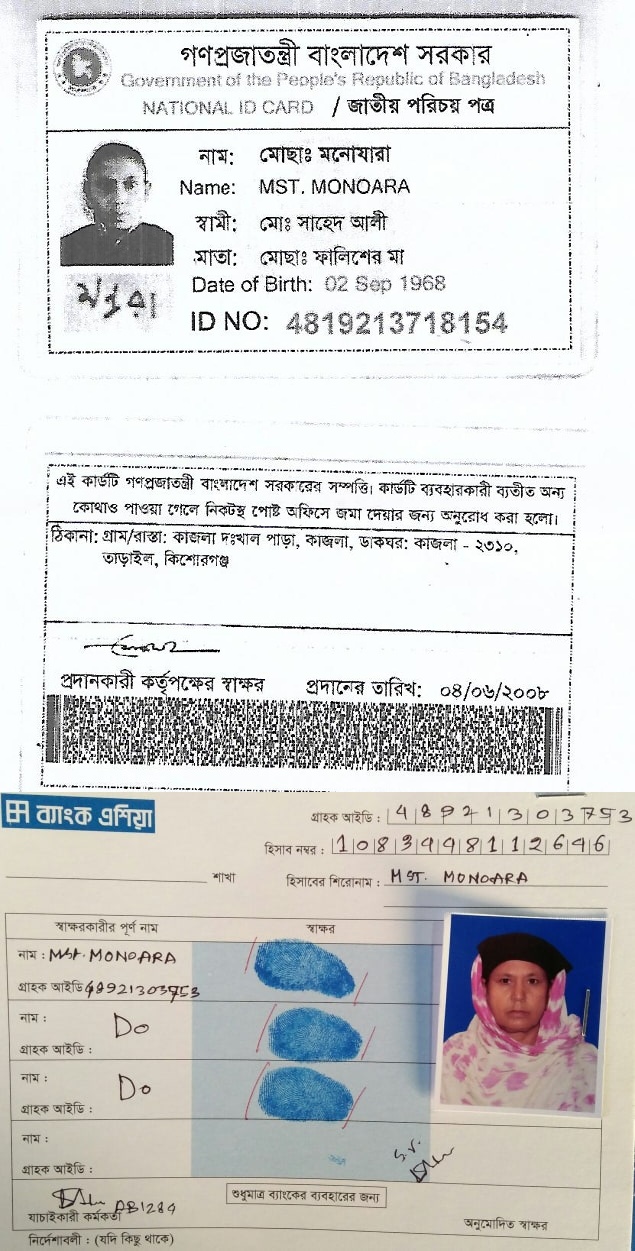 গণপ্রজাতন্ত্রী বাংলাদেশ সরকার
Government of the People's Republic of Bangladesh
NATIONAL ID CARD / জাতীয় পরিচয় পত্র
নাম: মোছাঃ মনোযারা
Name: MST. MONOARA
স্বামী: মোঃ সাহেদ আলী
মাতা: মোছাঃ ফালিশের মা
Date of Birth: 02 Sep 1968
ID NO: 4819213718154
এই কার্ডটি গণপ্রজাতন্ত্রী বাংলাদেশ সরকারের সম্পত্তি। কার্ডটি ব্যবহারকারী ব্যতীত অন্য
কোথাও পাওয়া গেলে নিকটস্থ পোষ্ট অফিসে জমা দেয়ার জন্য অনুরোধ করা হলো।
ঠিকানা: গ্রাম/রাস্তা: কাজলা দঃখাল পাড়া, কাজলা, ডাকঘর: কাজলা - ২৩১০,
তাড়াইল, কিশোরগঞ্জ
প্রদানকারী কর্তৃপক্ষের স্বাক্ষর প্রদানের তারিখ: ০৪/০৬/২০০৮
ব্যাংক এশিয়া
গ্রাহক আইডি :
হিসাব নম্বর : 1083448112646
শাখা হিসাবের শিরোনাম : MST. MONOARA
স্বাক্ষরকারীর পূর্ণ নাম স্বাক্ষর
নাম : MST. MONOARA
গ্রাহক আইডি
নাম : Do
গ্রাহক আইডি :
নাম : Do
গ্রাহক আইডি :
নাম :
গ্রাহক আইডি :
S.V.
শুধুমাত্র ব্যাংকের ব্যবহারের জন্য
যাচাইকারী কর্মকর্তা
অনুমোদিত স্বাক্ষর
নির্দেশাবলী : (যদি কিছু থাকে)